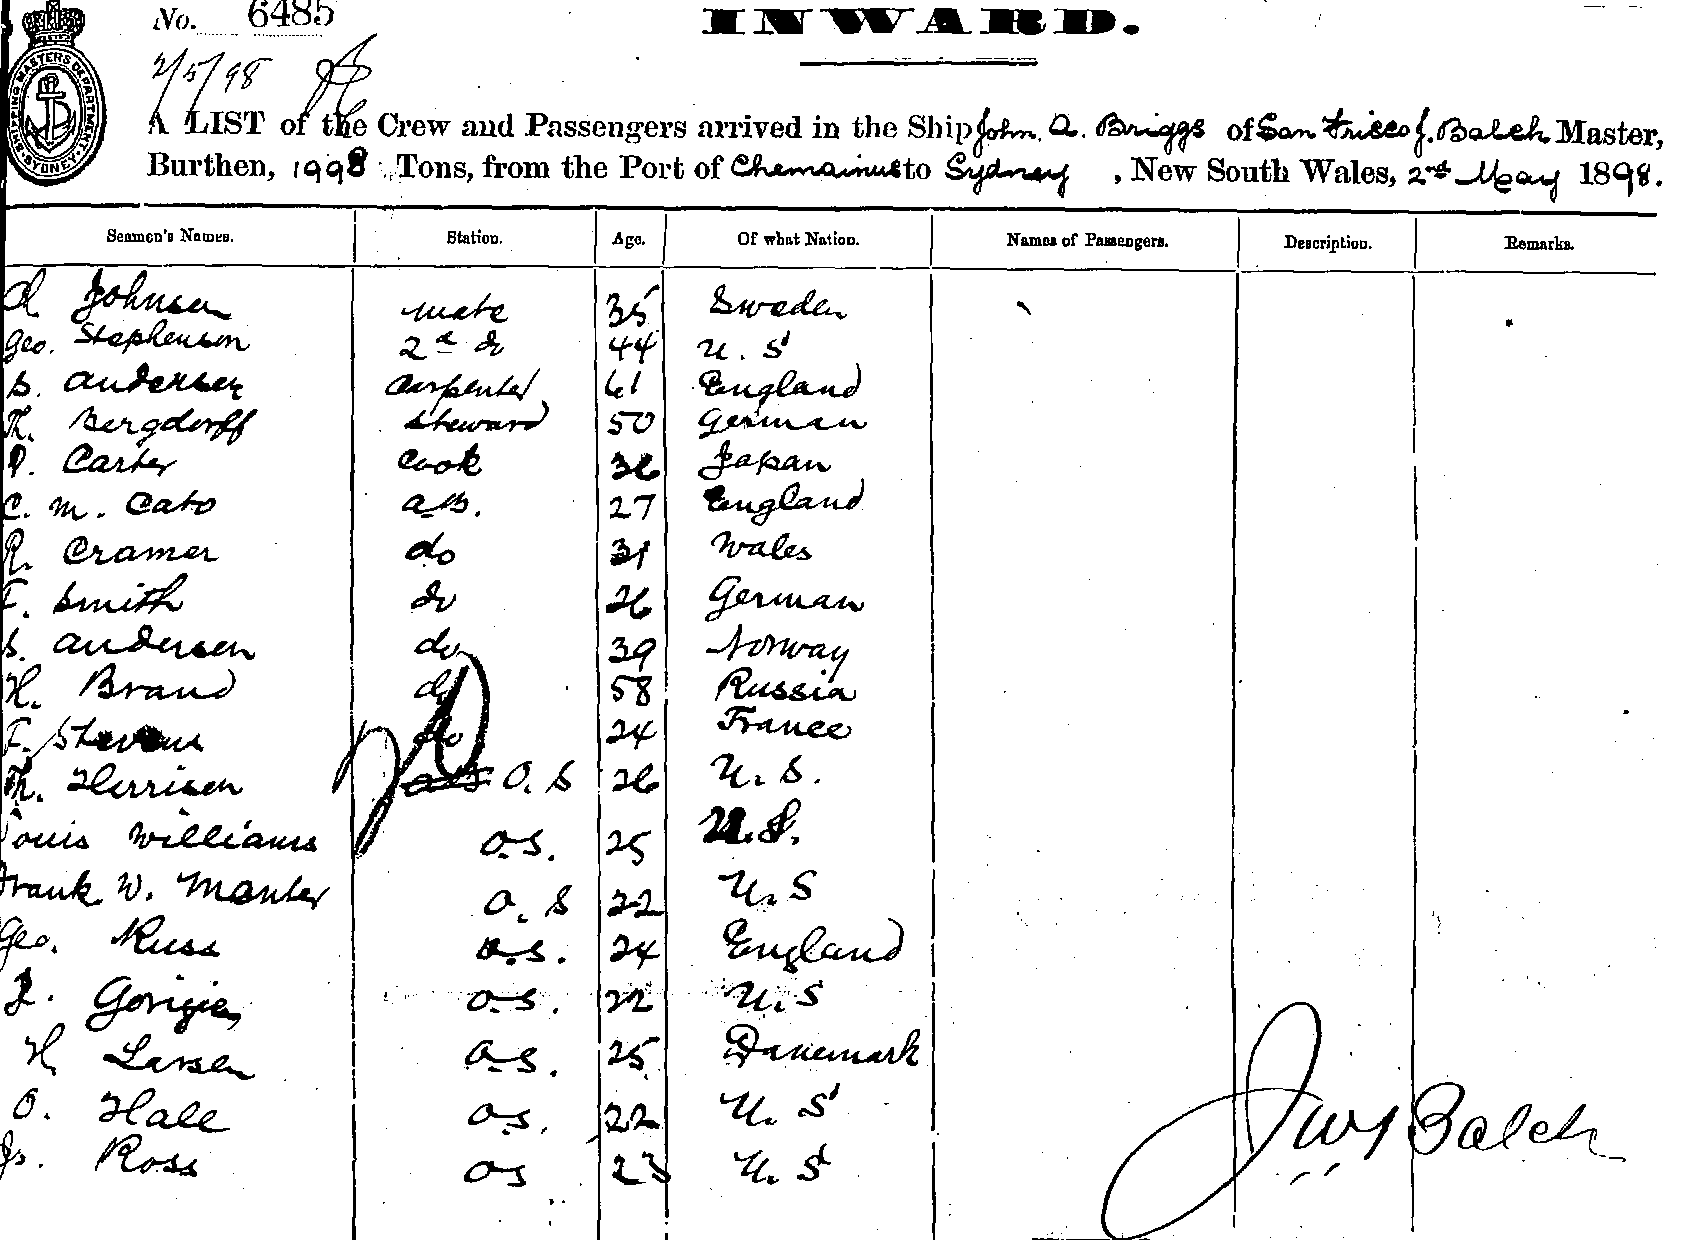 No. 6485
INWARD.
SHIPPING MASTER'S DEPARTMENT SYDNEY
2/5/98
A LIST of the Crew and Passengers arrived in the Ship John. A. Briggs of San Frisco J. Balch Master,
Burthen, 1998 Tons, from the Port of Chemainus to Sydney, New South Wales, 2nd May 1898.
Seamen's Names. Station. Age. Of what Nation. Names of Passengers. Description. Remarks.
Johnsen mate 35 Sweden
Geo. Stephenson 2d do 44 U. S
S. Andersen Carpenter 61 England
Th. Bergdorff Steward 50 German
P. Carter Cook 36 Japan
C. M. Cato A.B. 27 England
R. Cramer do 31 Wales
F. Smith do 26 German
S. Andersen do 39 Norway
H. Brand do 58 Russia
F. Stevens do 24 France
Th. Herrisen O. S 26 U. S.
Louis Williams O.S. 25 U.S.
Frank W. Manter O. S 22 U. S
Geo. Russ O.S. 24 England
O.S. 22 U. S
H Larsen O.S. 25 Danemark
O. Hall O.S. 22 U. S
Js. Ross OS 23 U. S
Balch